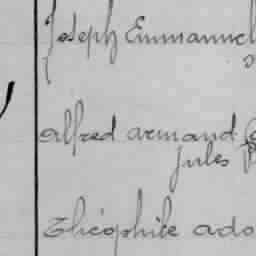 Joseph Emmanuel
alfred armand
jules
Théophile ado